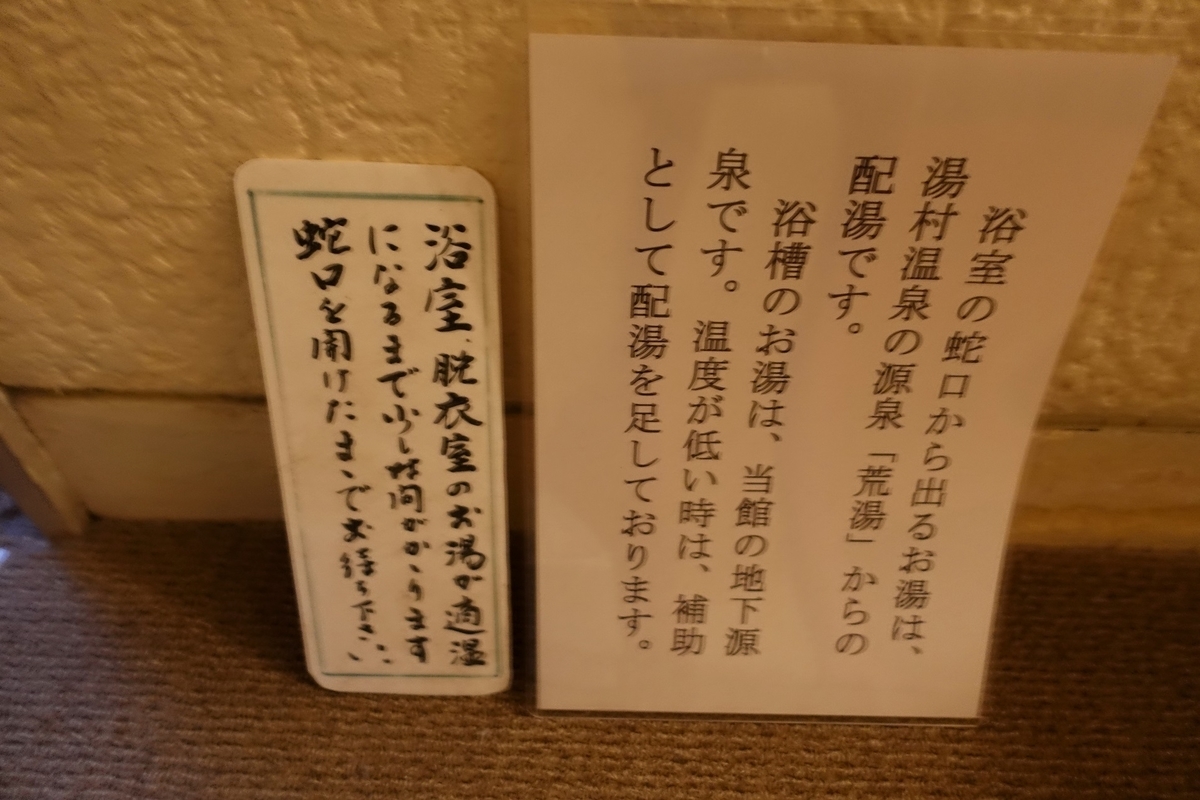 浴室の蛇口から出るお湯は、
湯村温泉の源泉「荒湯」からの
配湯です。
浴槽のお湯は、当館の地下源
泉です。温度が低い時は、補助
として配湯を足しております。
浴室、脱衣室のお湯が適温
になるまで少し時間がかゝります
蛇口を開けたまゝでお待ち下さい